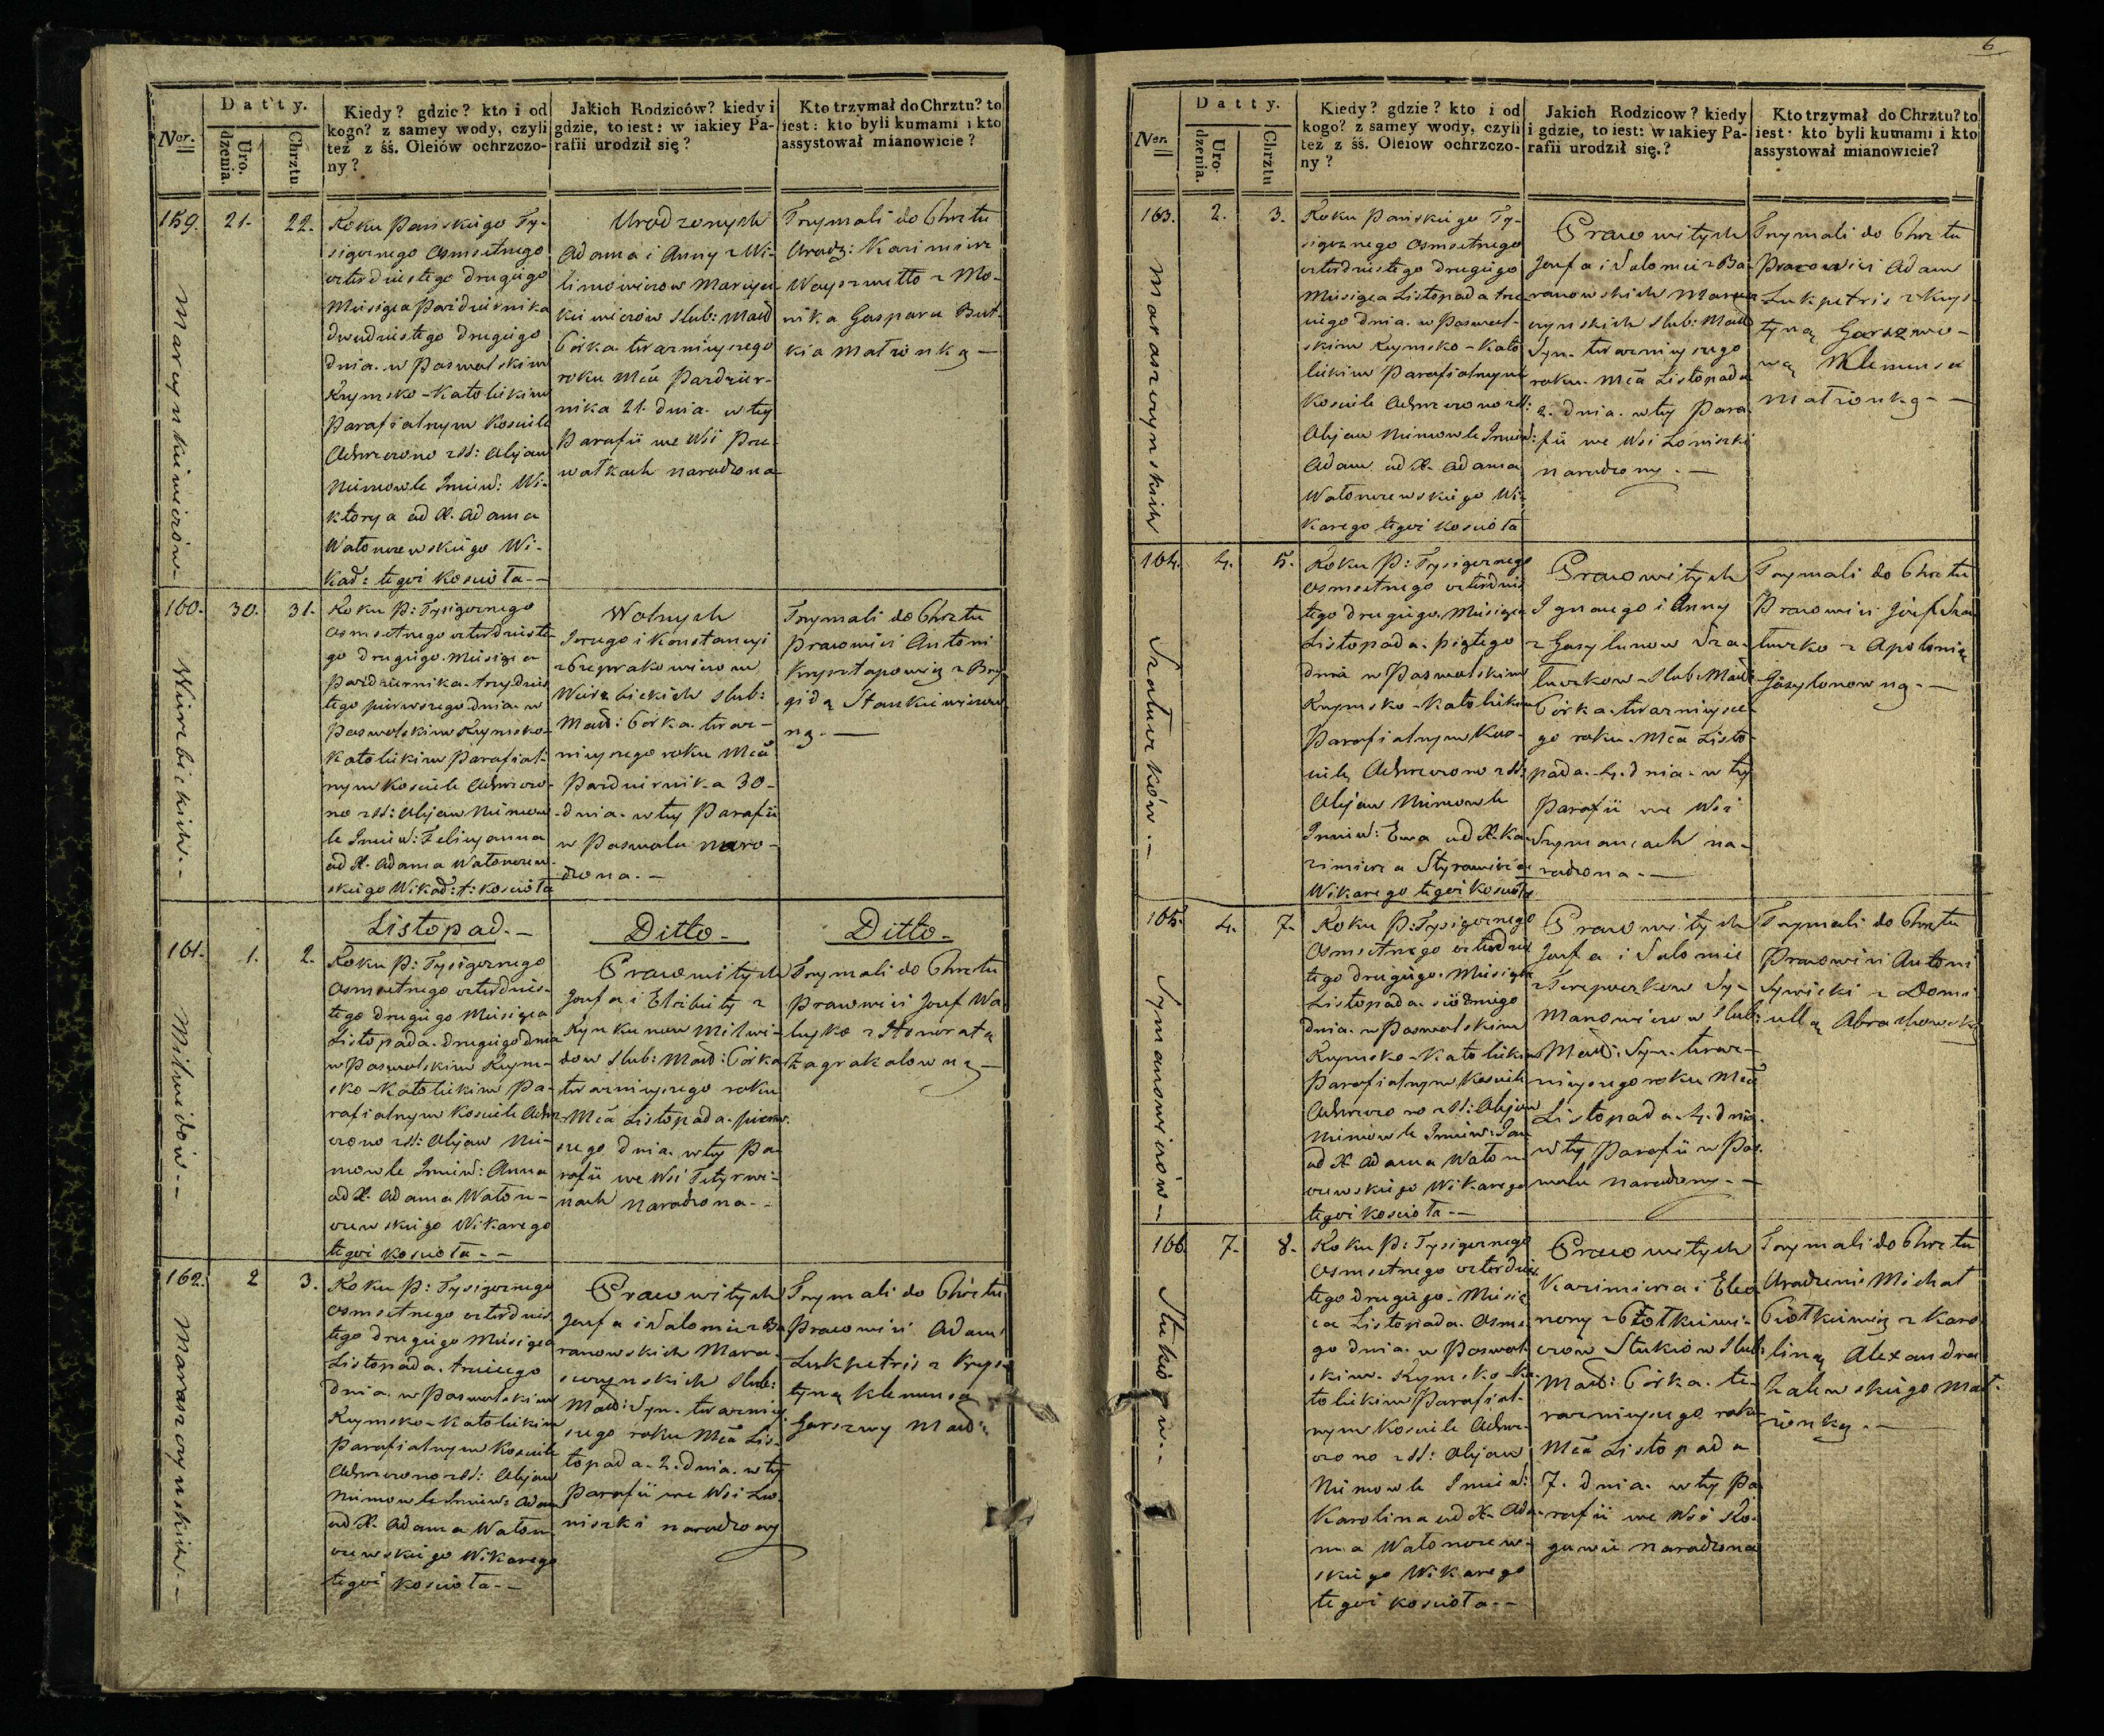 Datty.
Ner.
Uro-
dzenia.
Chrztu
Kiedy? gdzie? kto i od
kogo? z samey wody, czyli
też z śś. Oleiów ochrzczo-
ny?
Jakich Rodziców? kiedy i
gdzie, to iest: w iakiey Pa-
rafii urodził się?
Kto trzymał do Chrztu? to
iest: kto byli kumami i kto
assystował mianowicie?
159. 21. 22.
Marcynkiewiczów
Roku Pańskiego Ty-
siącznego Osmsetnego
czterdziestego drugiego
Miesiąca Pazdziernika
dwudziestego drugiego
dnia w Paswolskim
Rzymsko-Katolickim
Parafialnym Kosciele
Ochrzczono z SS: Olejami
Niemowle Imien: Wi-
ktorya od X. Adama
Watonczewskiego Wi-
kar: tegoż Koscioła
Urodzonych
Adama i Anny z Wi-
limowiczow Marcyn-
kiewiczow slub: Małż
Córka teraznieyszego
roku Mca Pazdzier-
nika 21. dnia w tey
Parafii we Wsi Prze-
wałkach narodzona
Trzymali do Chrztu
Urodz: Kazimierz
Woyszwiłło z Mo-
nika Gaspara But-
kia małżonką
160. 30. 31.
Wierzbickich
Roku P: Tysiącznego
osmsetnego czterdzieste-
go drugiego Miesiąca
Pazdziernika trzydzies-
tego pierwszego dnia w
Paswolskim Rzymsko-
Katolickim Parafial-
nym Kosciele Ochrzczo-
no z SS: Olejami Niemow-
le Imien: Felicyanna
od X. Adama Watonczew-
skiego Wikar: t: Koscioła
Wolnych
Jerzego i Konstancyi
Wierzbickich slub:
Małż: Córka teraz-
nieyszego roku Mca
Pazdziernika 30
dnia w tey Parafii
w Paswolu naro-
dzona.
Trzymali do Chrztu
Pracowici Antoni
Krysztapowicz z Bry-
gidą Stankiewiczow-
ną.
Listopad. Ditto Ditto
161. 1. 2.
Milwidów
Roku P: Tysiącznego
Osmsetnego czterdzies-
tego drugiego Miesiąca
Listopada drugiego dnia
w Paswolskim Rzym-
sko-Katolickim Pa-
rafialnym Kosciele Ochrz-
czono z SS: Olejami Nie-
mowle Imien: Anna
od X. Adama Waton-
czewskiego Wikarego
tegoż Koscioła
Pracowitych
Jozefa i Elzbiety z
Rynkunow Milwi-
dow slub: Małż: Córka
teraznieyszego roku
Mca Listopada pierw-
szego dnia w tey Pa-
rafii we Wsi Tetyrwi-
nach Narodzona
Trzymali do Chrztu
Pracowici Jozef Wa-
luszko z Honoratą
Zagrakalowną
162. 2 3.
Maraszczynskich
Roku P: Tysiącznego
Osmsetnego czterdzies-
tego drugiego Miesiąca
Listopada trzeciego
dnia w Paswolskim
Rzymsko-Katolickim
Parafialnym Kosciele
Ochrzczono z SS: Olejami
Niemowle Imien: Adam
od X. Adama Waton-
czewskiego Wikarego
tegoż Koscioła
Pracowitych
Jozefa i Salomei z Ba-
ranowskich Mara-
szczynskich slub:
Małż: Syn terazniey-
szego roku Mca Lis-
topada 2. dnia w tey
Parafii we Wsi Lo-
niszki narodzony
Trzymali do Chrztu
Pracowici Adam
Lukpetris z Krys-
tyną Klemensa
Garszwy Małż:
6
Datty.
Ner.
Uro-
dzenia.
Chrztu
Kiedy? gdzie? kto i od
kogo? z samey wody, czyli
też z śś. Oleiow ochrzczo-
ny?
Jakich Rodzicow? kiedy
i gdzie, to iest: w iakiey Pa-
rafii urodził się.?
Kto trzymał do Chrztu? to
iest: kto byli kumami i kto
assystował mianowicie?
163. 2. 3.
Maraszczynskich
Roku Pańskiego Ty-
siącznego Osmsetnego
czterdziestego drugiego
Miesiąca Listopada trze-
ciego dnia w Paswol-
skim Rzymsko-Kato-
lickim Parafialnym
Kosciele Ochrzczono z SS:
Olejami Niemowle Imien:
Adam od X. Adama
Watonczewskiego Wi-
karego tegoż Koscioła
Pracowitych
Jozefa i Salomei z Ba-
ranowskich Marasz-
czynskich slub: Małż
Syn teraznieyszego
roku Mca Listopada
2. dnia w tey Para-
fii we Wsi Loniszki
narodzony.
Trzymali do Chrztu
Pracowici Adam
Lukpetris z Krys-
tyną Garszwo-
wą Klemensa
małżonką
164. 4. 5.
Szaturków
Roku P: Tysiącznego
Osmsetnego czterdzies-
tego drugiego Miesiąca
Listopada piątego
dnia w Paswolskim
Rzymsko-Katolickim
Parafialnym Kos-
ciele Ochrzczono z SS:
Olejami Niemowle
Imien: Ewa od X. Ka-
zimierza Styrawicza
Wikarego tegoż Koscioła
Pracowitych
Ignacego i Anny
z Gasylunow Sza-
turkow slub: Małż
Córka teraznieysze-
go roku Mca Listo-
pada 4. dnia w tey
Parafii we Wsi
Szymancach na-
rodzona
Trzymali do Chrztu
Pracowici Józef Sza-
turko z Apolonią
Gasylonowną
165. 4. 7.
Symanowiczów
Roku P: Tysiącznego
Osmsetnego czterdzies-
tego drugiego Miesiąca
Listopada siodmego
dnia w Paswolskim
Rzymsko-Katolickim
Parafialnym Kosciele
Ochrzczono z SS: Olejami
Niemowle Imien: Jan
od X Adama Waton-
czewskiego Wikarego
tegoż Koscioła
Pracowitych
Jozefa i Salomei
Sy-
manowiczow slub:
Małż: Syn teraz-
nieyszego roku Mca
Listopada 4. dnia
w tey Parafii w Pas-
wolu narodzony.
Trzymali do Chrztu
Pracowici Antoni
Sywicki z Domi-
cellą
166. 7. 8.
Stukiów
Roku P: Tysiącznego
Osmsetnego czterdzies-
tego drugiego Miesią-
ca Listopada Osme-
go dnia w Paswol-
skim Rzymsko-Ka-
tolickim Parafial-
nym Kosciele Ochrz-
czono z SS: Olejami
Niemowle Imien:
Karolina od X. Ada-
ma Watonczew-
skiego Wikarego
tegoż Koscioła
Pracowitych
Kazimierza i Eleo-
nory z Piotkiewi-
czow Stukiow slub:
Małż: Córka te-
raznieyszego roku
Mca Listopada
7. dnia w tey Pa-
rafii we Wsi
narodzona
Trzymali do Chrztu
Urodzeni Michał
Piotkiewicz z Karo-
liną Alexandra
Zalewskiego Mał-
żonką.